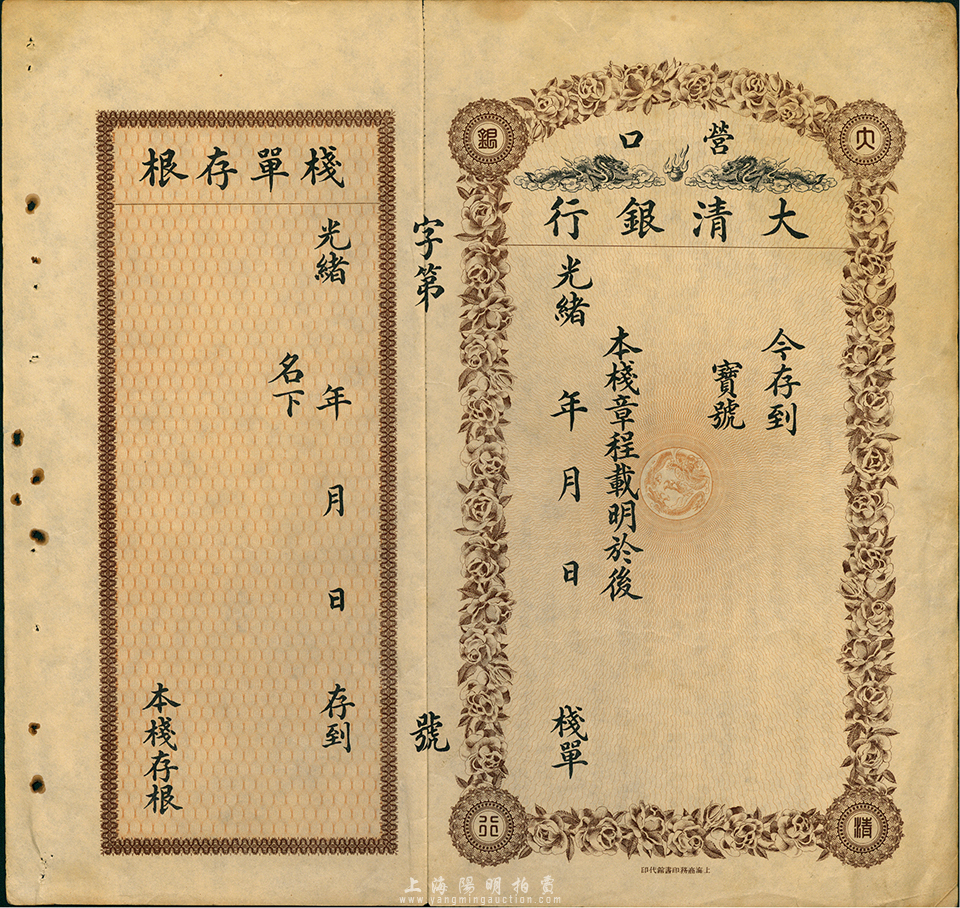 營口
大清銀行
今存到
寶號
本棧章程載明於後
光緒 年 月 日 棧單
大
清
銀
行
上海商務印書館代印
字第 號
棧單存根
光緒 年 月 日 存到
名下
本棧存根
上海陽明拍賣
www.yangmingauction.com